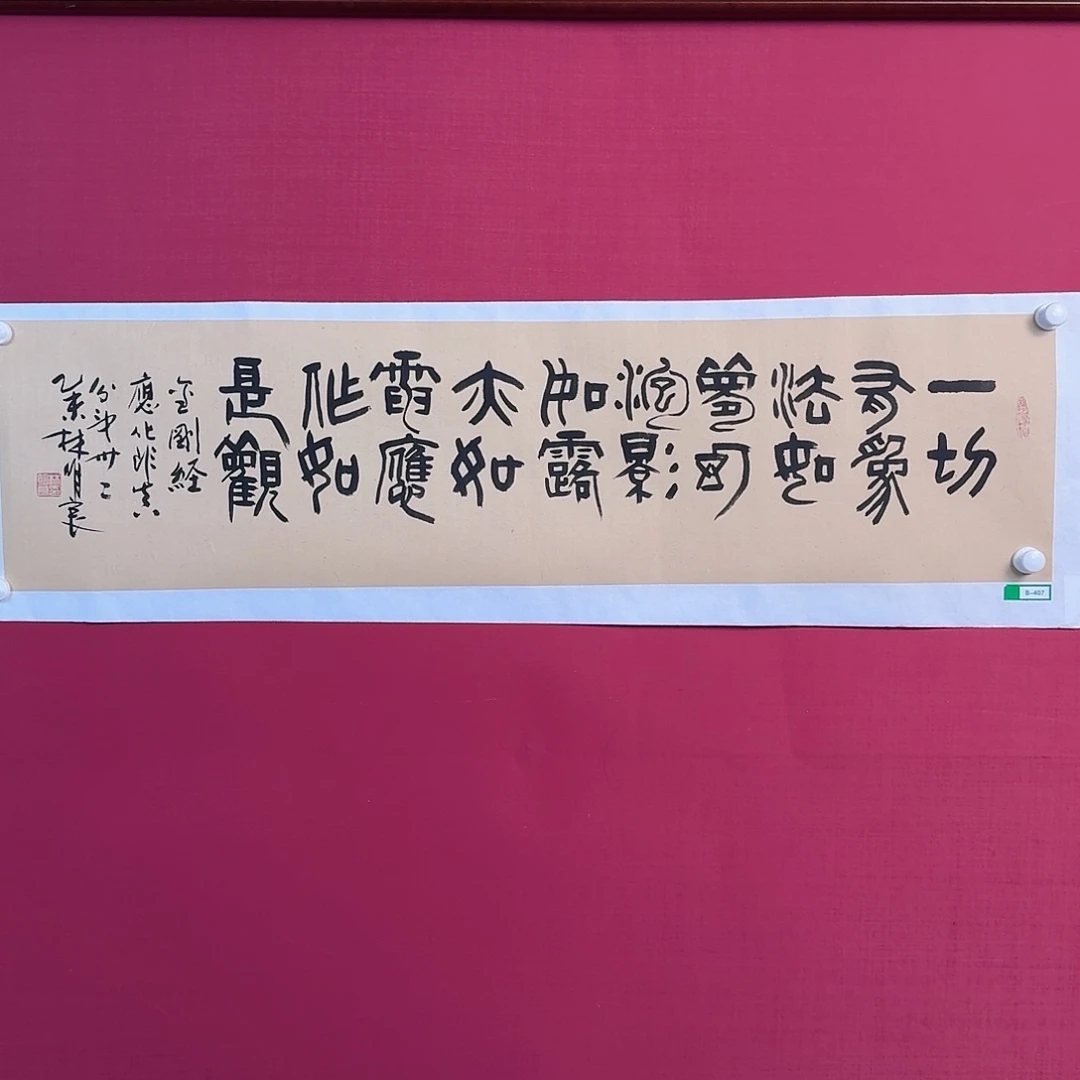 一切
有為
法如
夢幻
泡影
如露
亦如
電應
作如
是觀
金剛経
應化非真
分第卅二
林
B-407